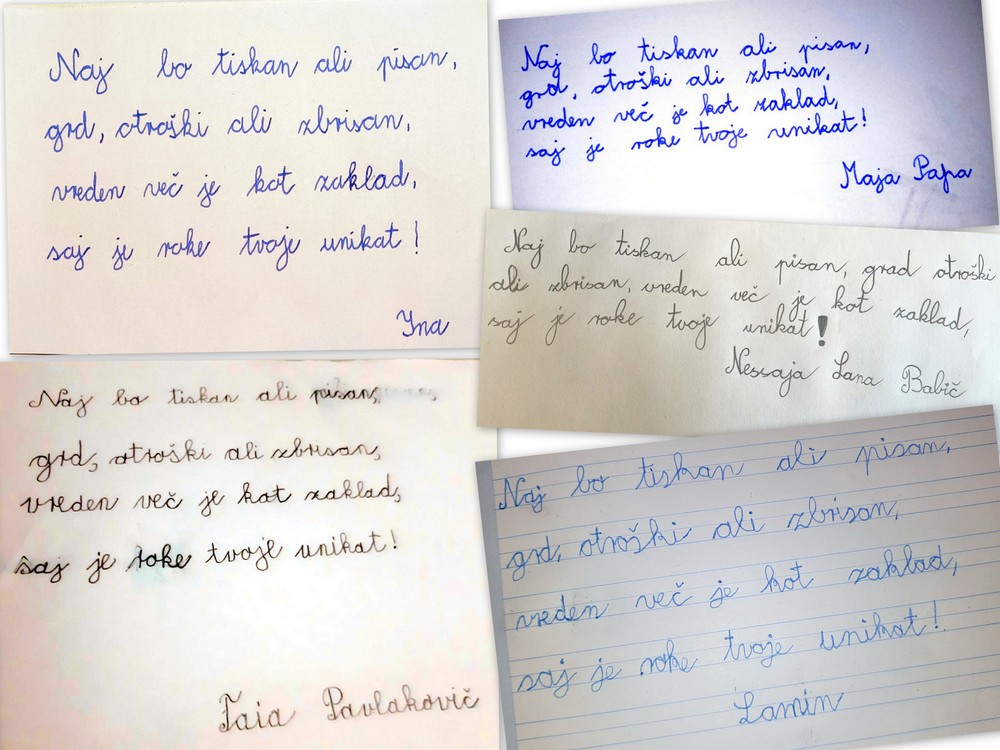 Naj bo tiskan ali pisan,
grd, otroški ali zbrisan,
vreden več je kot zaklad,
saj je roke tvoje unikat!
Yna
Naj bo tiskan ali pisan,
grd, otroški ali zbrisan,
vreden več je kot zaklad,
saj je roke tvoje unikat!
Maja Papa
Naj bo tiskan ali pisan, grad otroški
ali zbrisan, vreden več je kot zaklad,
saj je roke tvoje unikat!
Nessaja Lana Babič
Naj bo tiskan ali pisan,
grd, otroški ali zbrisan,
vreden več je kot zaklad,
saj je roke tvoje unikat!
Taia Pavlakovič
Naj bo tiskan ali pisan,
grd, otroški ali zbrisan,
vreden več je kot zaklad,
saj je roke tvoje unikat!
Lamin